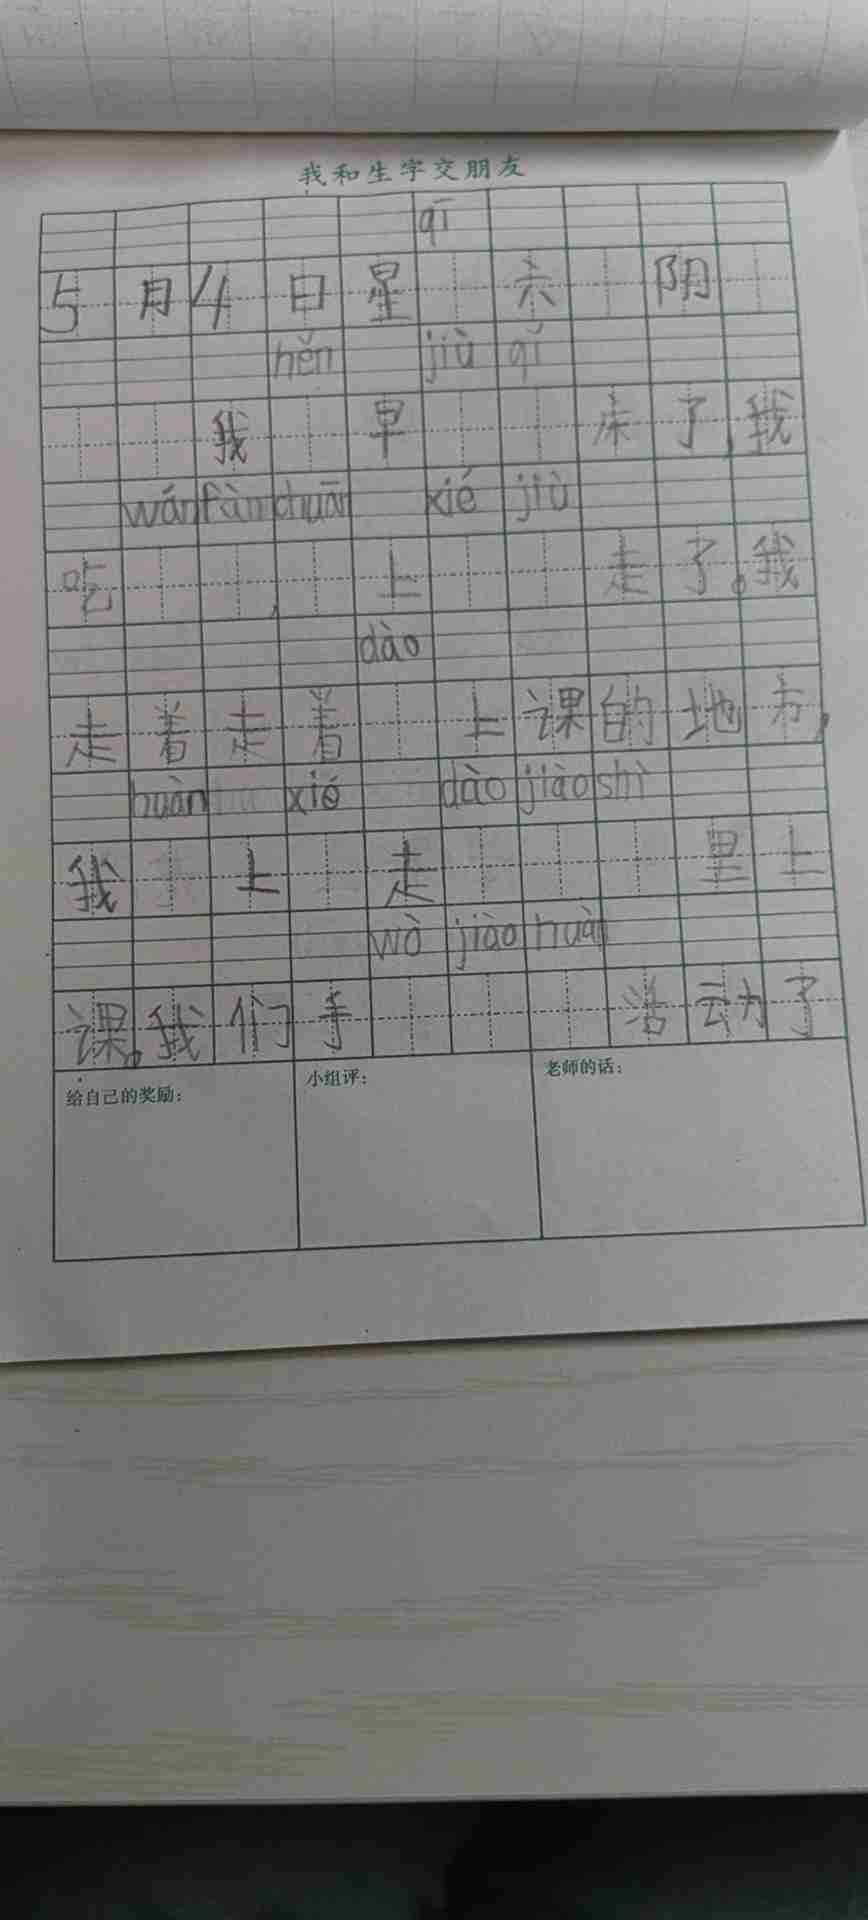 我和生字交朋友
qī
5月4日星 六 阴
hěn jiù qǐ
我 早 床了,我
wán fàn chuān xié jiù
吃 , 上 走了。我
dào
走着走着 上课的地方,
huàn xié dào jiào shì
我 上 走 里上
wò jiào huà
课。我们手 活动了
给自己的奖励:
小组评:
老师的话: